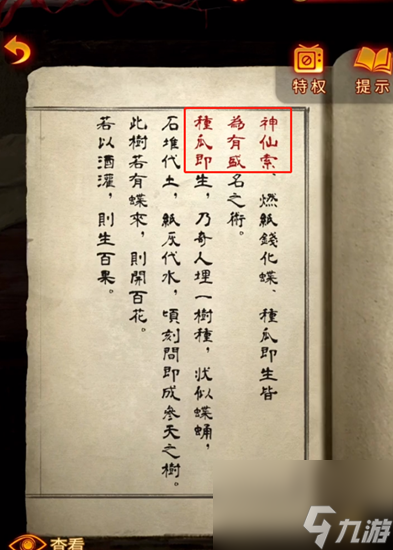 特权
提示
神仙索、燃紙錢化蝶、種瓜即生皆
為有盛名之術。
種瓜即生，乃奇人埋一樹種，狀似蝶蛹，
石堆代土，紙灰代水，頃刻間即成參天之樹。
此樹若有蝶來，則開百花。
若以酒灌，則生百果。
查看
九游